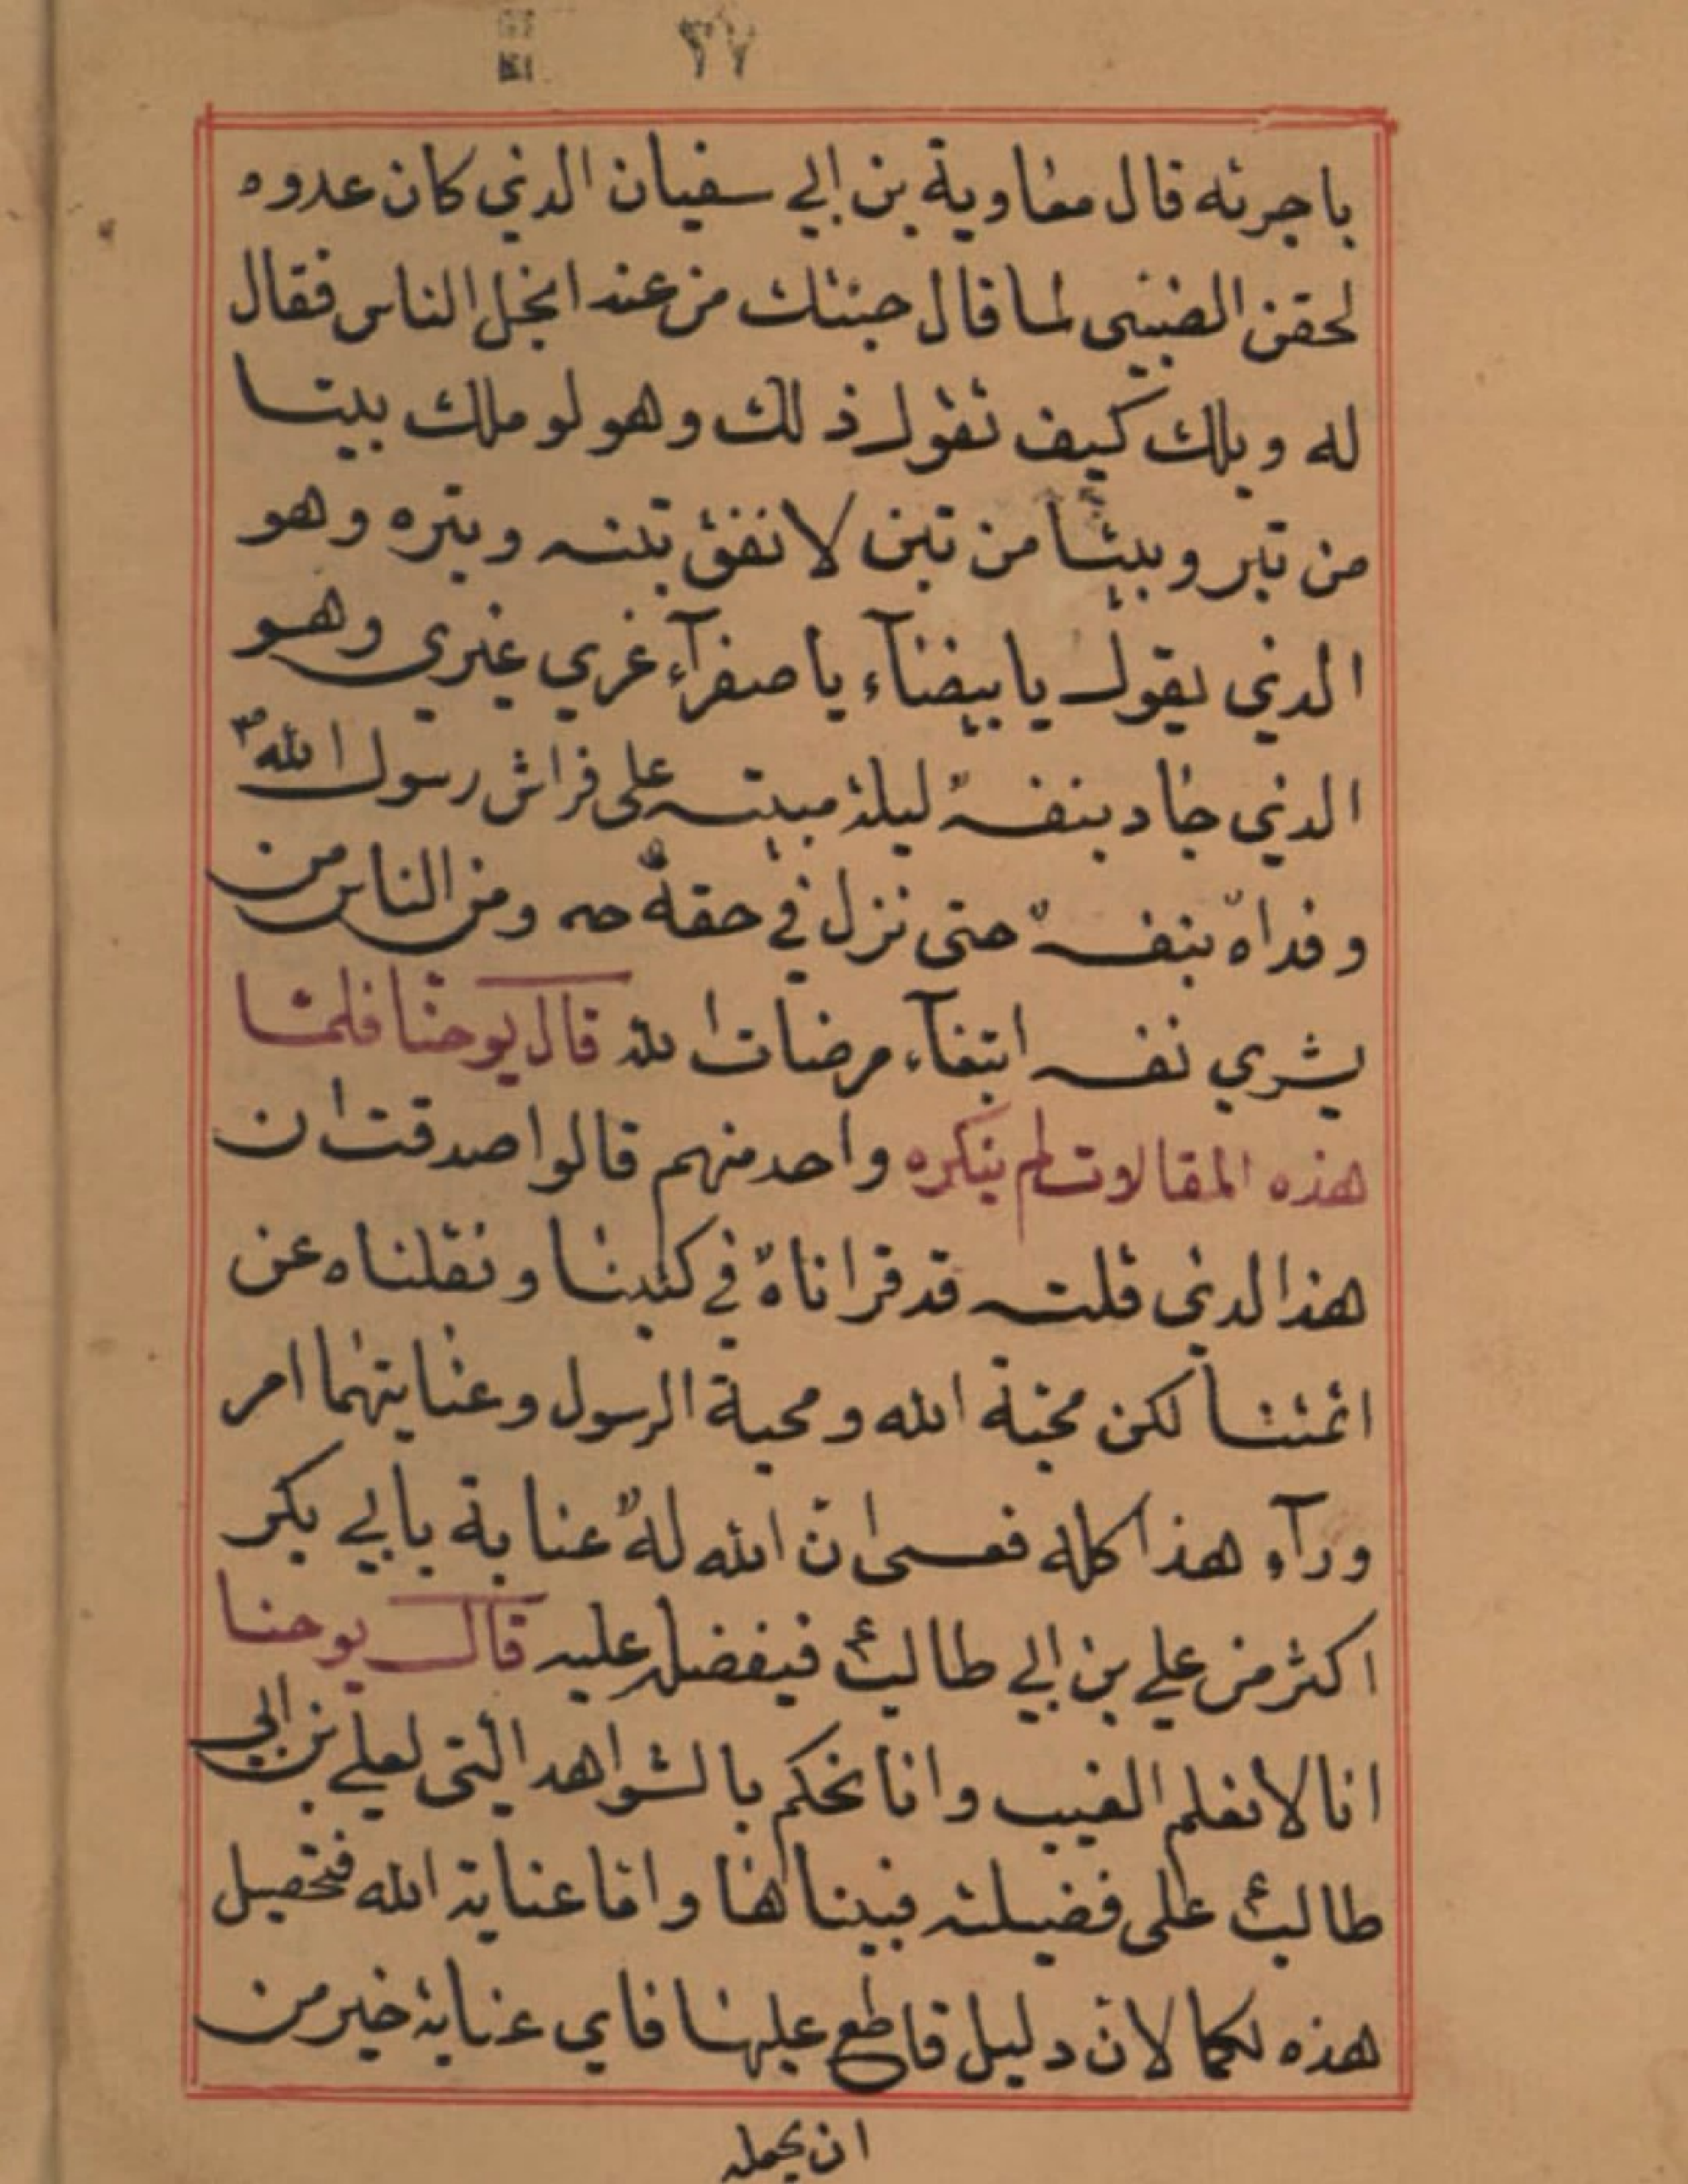 ٣٧
باجرته قال معاوية بن ابي سفيان الذي كان عدوه
لحقن الضبيبي لما قال جئتك من عند ابخل الناس فقال
له ويلك كيف تقول ذلك وهو لو ملك بيتا
من تبر وبيتا من تبن لانفق تبنه وبتره وهو
الذي يقول يا بيضآء يا صفرآء غري غيري وهو
الذي جاد بنفسه ليلة مبيته على فراش رسول الله ص
وفداه بنفسه حتى نزل في حقه ومن الناس من
يشري نفسه ابتغآء مرضات الله قال يوحنا فلما
هذه المقالات لم ينكره واحد منهم قالوا صدقت ان
هذا الذي قلته قد قراناه في كتبنا ونقلناه عن
ائمتنا لكن محبة الله ومحبة الرسول وعنايتهما امر
ورآء هذا كله فعسى ان الله له عناية بابي بكر
اكثر من علي بن ابي طالب ع فيفضله عليه قال يوحنا
انا لا نعلم الغيب وانا نحكم بالشواهد التي لعلي بن ابي
طالب ع على فضيلته فبيناها واما عناية الله فتحصيل
هذه الكمالات دليل قاطع عليها فاي عناية خير من
ان يجعله